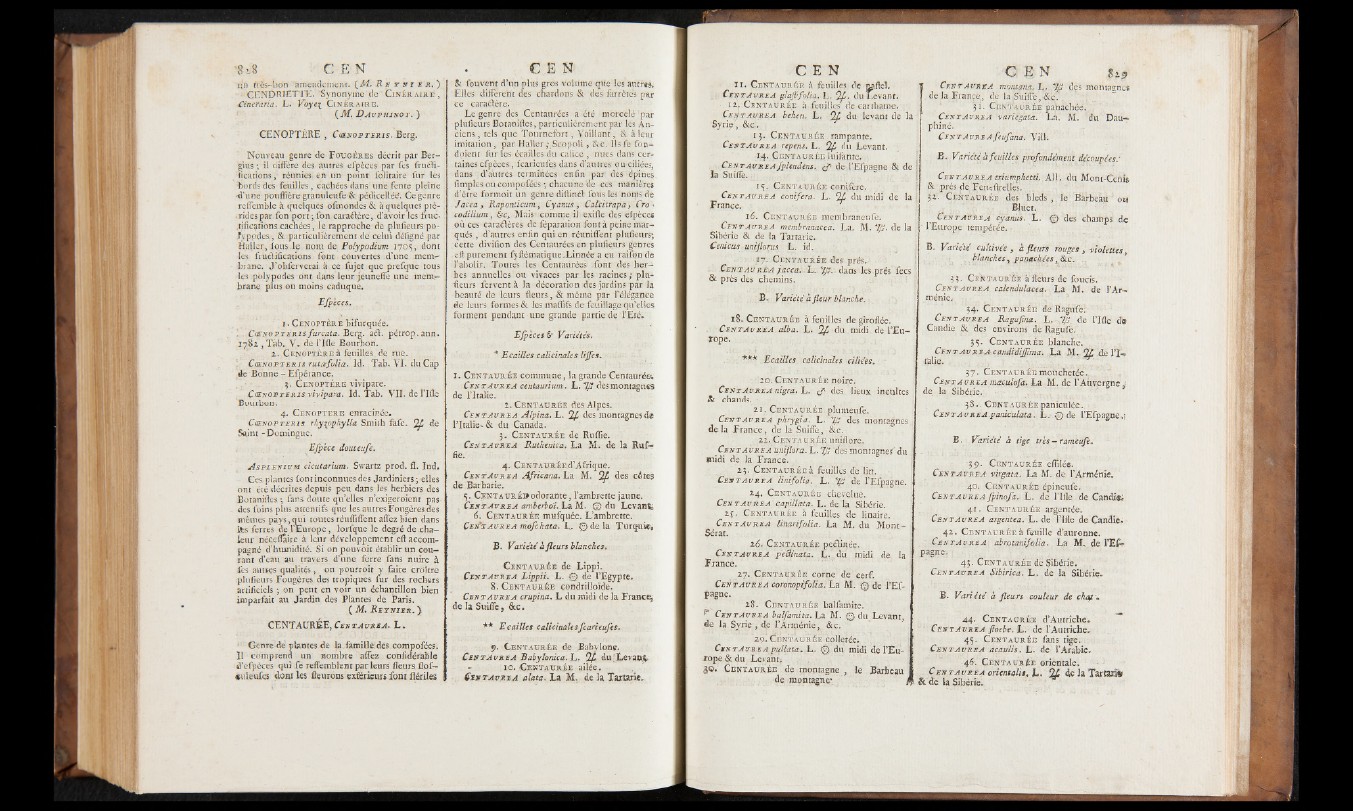 828 CEN
un très-bon amendement. (M. REYNIER.)
CENDRIETTE. Synonyme de CINÉRAIRE,
Cineraria. L. Voyez CINÉRAIRE.
(M. DAUPHINOT.)
CENOPTÈRE, CÆNOPTERIS. Berg.
Nouveau genre de FOUGÈRES décrit par Ber-
gius; il diffère des autres espèces par ses fructi-
fications, réunies en un point solitaire sur les
bords des feuilles, cachées dans une fente pleine
d'une poussière granuleuse & pédicellée. Ce genre
ressemble à quelques osmondes & à quelques pté-
rides par son port; son caractère, d'avoir les fruc-
tifications cachées, le rapproche de plusieurs po-
lypodes, & particulièrement de celui désigné par
Haller, sous le nom de Polypodium 1705, dont
les fructifications sont couvertes d'une mem-
brane. J'observerai à ce sujet que presque tous
les polypodes ont dans leur jeunesse une mem-
brane plus ou moins caduque.
Espèces.
1. CENOPTÈRE bifurquée.
CÆNOPTERIS furcata. Berg. act. pétrop. ann.
1782, Tab. V. de l'Isle Bourbon.
2. CENOPTÈRE à feuilles de rue.
CÆNOPTERIS rutæfolia. Id. Tab. VI. du Cap
de Bonne-Espérance.
3. CENOPTÈRE vivipare.
CÆNOPTERIS vivipara. Id. Tab. VII. de l'Isle
Bourbon.
4. CENOPTERE enracinée.
CÆNOPTERIS rhyzophylla Smith fasc. ♃ de
Saint-Domingue.
Espèce douteuse.
ASPLENIUM cicutarium. Swartz prod. fl. Ind.
Ces plantes sont inconnues des Jardiniers; elles
ont été décrites depuis peu dans les herbiers des
Botanistes; sans doute qu'elles n'exigeroient pas
des soins plus attentifs que les autres Fougères des
mêmes pays, qui toutes réussissent assez bien dans
les serres de l'Europe, lorsque le degré de cha-
leur nécessaire à leur développement est accom-
pagné d'humidité. Si on pouvoit établir un cou-
rant d'eau au travers d'une serre sans nuire à
ses autres qualités, on pourroit y faire croître
plusieurs Fougères des tropiques sur des rochers
artificiels; on peut en voir un échantillon bien
imparfait au Jardin des Plantes de Paris.
(M. REYNIER.)
CENTAURÉE, CENTAUREA. L.
Genre de plantes de la famille des composées.
Il comprend un nombre assez considérable
d'espèces qui se ressemblent par leurs fleurs flos-
culeuses dont les fleurons extérieurs sont stériles
CEN
& souvent d'un plus gros volume que les autres.
Elles diffèrent des chardons & des sarrètes par
ce caractère.
Le genre des Centaurées a été morcelé par
plusieurs Botanistes, particulièrement par les An-
ciens, tels que Tournefort, Vaillant, & à leur
imitation, par Haller, Scopoli, &c. Ils se fon-
doient sur les écailles du calice, nues dans cer-
taines espèces, scarieuses dans d'autres ou ciliées,
dans d'autres terminées enfin par des épines
simples ou composées; chacune de ces manières
d'être formoit un genre distinct sous les noms de
Jacea, Raponticum, Cyanus, Calcitrapa, Cro-
codilium, &c. Mais comme il existe des espèces
où ces caractères de séparation sont à peine mar-
qués, d'autres enfin qui en réunissent plusieurs;
cette division des Centaurées en plusieurs genres
est purement systématique. Linnée a eu raison de
l'abolir. Toutes les Centaurées sont des her-
bes annuelles ou vivaces par les racines; plu-
sieurs servent à la décoration des jardins par la
beauté de leurs fleurs, & même par l'élégance
de leurs formes & les massifs de feuillage qu'elles
forment pendant une grande partie de l'Été.
Espèces & Variétés.
* Ecailles calicinales lisses.
1. CENTAURÉE commune, la grande Centaurée.
CENTAUREA centaurium. L. ♃ des montagnes
de l'Italie.
2. CENTAURÉE des Alpes.
CENTAUREA Alpina. L. ♃ des montagnes de
l'Italie & du Canada.
3. CENTAURÉE de Russie.
CENTAUREA Ruthenica. La M. de la Rus-
sie.
4. CENTAURÉE d'Afrique.
CENTAUREA Africana. La M. ♃ des côtes
de Barbarie.
5. CENTAURÉE odorante, l'ambrette jaune.
CENTAUREA amberboi. La M. ☉ du Levant.
6. CENTAURÉE musquée. L'ambrette.
CENTAUREA moschata. L. ☉ de la Turquie.
B. Variété à fleurs blanches.
CENTAURÉE de Lippi.
CENTAUREA Lippii. L. ☉ de l'Egypte.
8. CENTAURÉE condrilloïde.
CENTAUREA crupina. L du midi de la France,
de la Suisse, &c.
** Ecailles calicinales scarieuses.
9. CENTAURÉE de Babylone.
CENTAUREA Babylonica. L. ♃ du Levant.
10. CENTAURÉE ailée.
CENTAUREA alata. La M. de la Tartarie.
CEN
11. CENTAURÉE à feuilles de pastel.
CENTAUREA glastifolia. L. ♃. du Levant.
12. CENTAURÉE à feuilles de carthame.
CENTAUREA behen. L. ♃ du levant de la
Syrie, &c.
13. CENTAURÉE rampante.
CENTAUREA repens. L. ♃ du Levant.
14. CENTAURÉE luisante.
CENTAUREA splendens. ♂ de l'Espagne & de
la Suisse.
15. CENTAURÉE conifère.
CENTAUREA conifera. L. ♃ du midi de la
France.
16. CENTAURÉE membraneuse.
CENTAUREA membranacea. La. M. ♃. de la
Sibérie & de la Tartarie.
Cnicus uniflorus L. id.
17. CENTAURÉE des prés.
CENTAUREA jacea. L. ♃. dans les prés secs
& près des chemins.
B. Variété à fleur blanche.
18. CENTAURÉE à feuilles de giroflée.
CENTAUREA alba. L. ♃ du midi de l'Eu-
rope.
*** Ecailles calicinales ciliées.
20. CENTAURÉE noire.
CENTAUREA nigra. L. ♂ des lieux incultes
& chauds.
21. CENTAURÉE plumeuse.
CENTAUREA phrygia. L. ♃ des montagnes
de la France, de la Suisse, &c.
22. CENTAURÉE uniflore.
CENTAUREA uniflora. L. ♃ des montagnes du
midi de la France.
23. CENTAURÉE à feuilles de lin.
CENTAUREA linifolia. L. ♃ de l'Espagne.
24. CENTAURÉE chevelue.
CENTAUREA capillata. L. de la Sibérie.
25. CENTAURÉE à feuilles de linaire.
CENTAUREA linarifolia. La M. du Mont-
Sérat.
26. CENTAURÉE pectinée.
CENTAUREA pectinata. L. du midi de la
France.
27. CENTAURÉE corne de cerf.
CENTAUREA coronopifolia. La M. ☉ de l'Es-
pagne.
28. CENTAURÉE balsamite.
CENTAUREA balsamita. La M. ☉ du Levant,
de la Syrie, de l'Arménie, &c.
29. CENTAURÉE colletée.
CENTAUREA pullata. L. ☉ du midi de l'Eu-
rope & du Levant.
30. CENTAURÉE de montagne, le Barbeau
de montagne.
CEN 829
CENTAUREA montana. L. ♃ des montagnes
de la France, de la Suisse, &c.
31. CENTAURÉE panachée.
CENTAUREA variegata. La. M. du Dau-
phiné.
CENTAUREA seusana. Vill.
B. Variété à feuilles profondément découpées.
CENTAUREA triumphetti. All. du Mont-Cenis
& près de Fenestrelles.
32. CENTAURÉE des bleds, le Barbeau ou
Bluet.
CENTAUREA cyanus. L. ☉ des champs de
l'Europe tempérée.
B. Variété cultivée, à fleurs rouges, violettes,
blanches, panachées, &c.
33. CENTAURÉE à fleurs de soucis.
CENTAUREA calendulacea. La M. de l'Ar-
ménie.
34. CENTAURÉE de Raguse.
CENTAUREA Ragusina. L. ♃ de l'Isle de
Candie & des environs de Raguse.
35. CENTAURÉE blanche.
CENTAUREA candidissima. La M. ♃ de l'I-
talie.
37. CENTAURÉE mouchetée.
CENTAUREA maculosa. La M. de l'Auvergne,
de la Sibérie.
38. CENTAURÉE paniculée.
CENTAUREA paniculata. L. ☉ de l'Espagne.
B. Variété à tige très-rameuse.
39. CENTAURÉE effilée.
CENTAUREA virgata. La M. de l'Arménie.
40. CENTAURÉE épineuse.
CENTAUREA spinosa. L. de l'Isle de Candie.
41. CENTAURÉE argentée.
CENTAUREA argentea. L. de l'Isle de Candie.
42. CENTAURÉE à feuille d'auronne.
CENTAUREA abrotanifolia. La M. de l'Es-
pagne.
43. CENTAURÉE de Sibérie.
CENTAUREA Sibirica. L. de la Sibérie.
B. Variété à fleurs couleur de chair.
44. CENTAURÉE d'Autriche.
CENTAUREA stoebe. L. de l'Autriche.
45. CENTAURÉE sans tige.
CENTAUREA acaulis. L. de l'Arabie.
46. CENTAURÉE orientale.
CENTAUREA orientalis. L. ♃ de la Tartarie
& de la Sibérie.